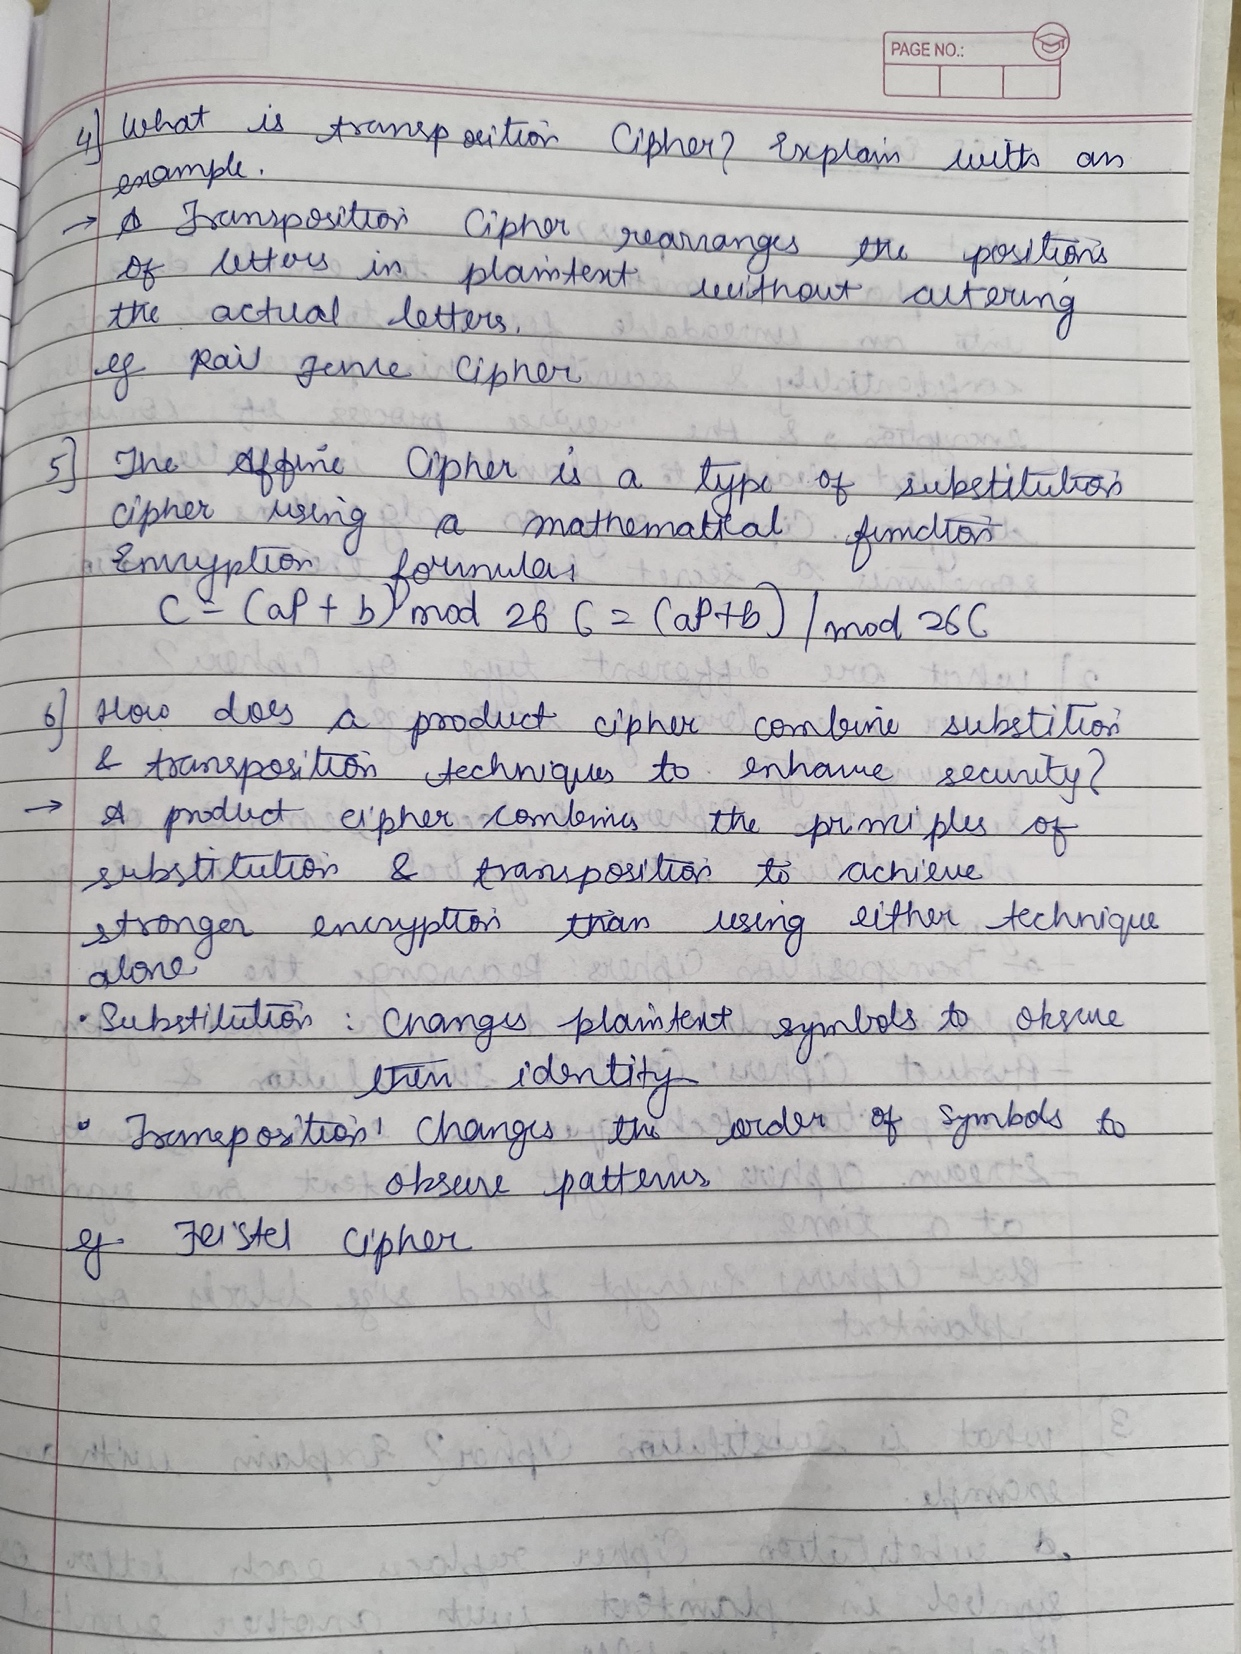 PAGE NO.:
4] What is transposition Cipher? Explain with an
example.
→ A Transposition Cipher rearranges the positions
of letters in plaintext without altering
the actual letters.
eg Rail Fence Cipher
5] The Affine Cipher is a type of substitution
cipher using a mathematical function
Encryption formula:
C = (aP + b) mod 26 C = (aP+b) / mod 26C
6] How does a product cipher combine substition
& transposition techniques to enhance security?
→ A product cipher combines the principles of
substitution & transposition to achieve
stronger encryption than using either technique
alone
• Substitution : Changes plaintext symbols to obsure
their identity
• Transposition: Changes the order of symbols to
obsure patterns
eg. Feistel Cipher